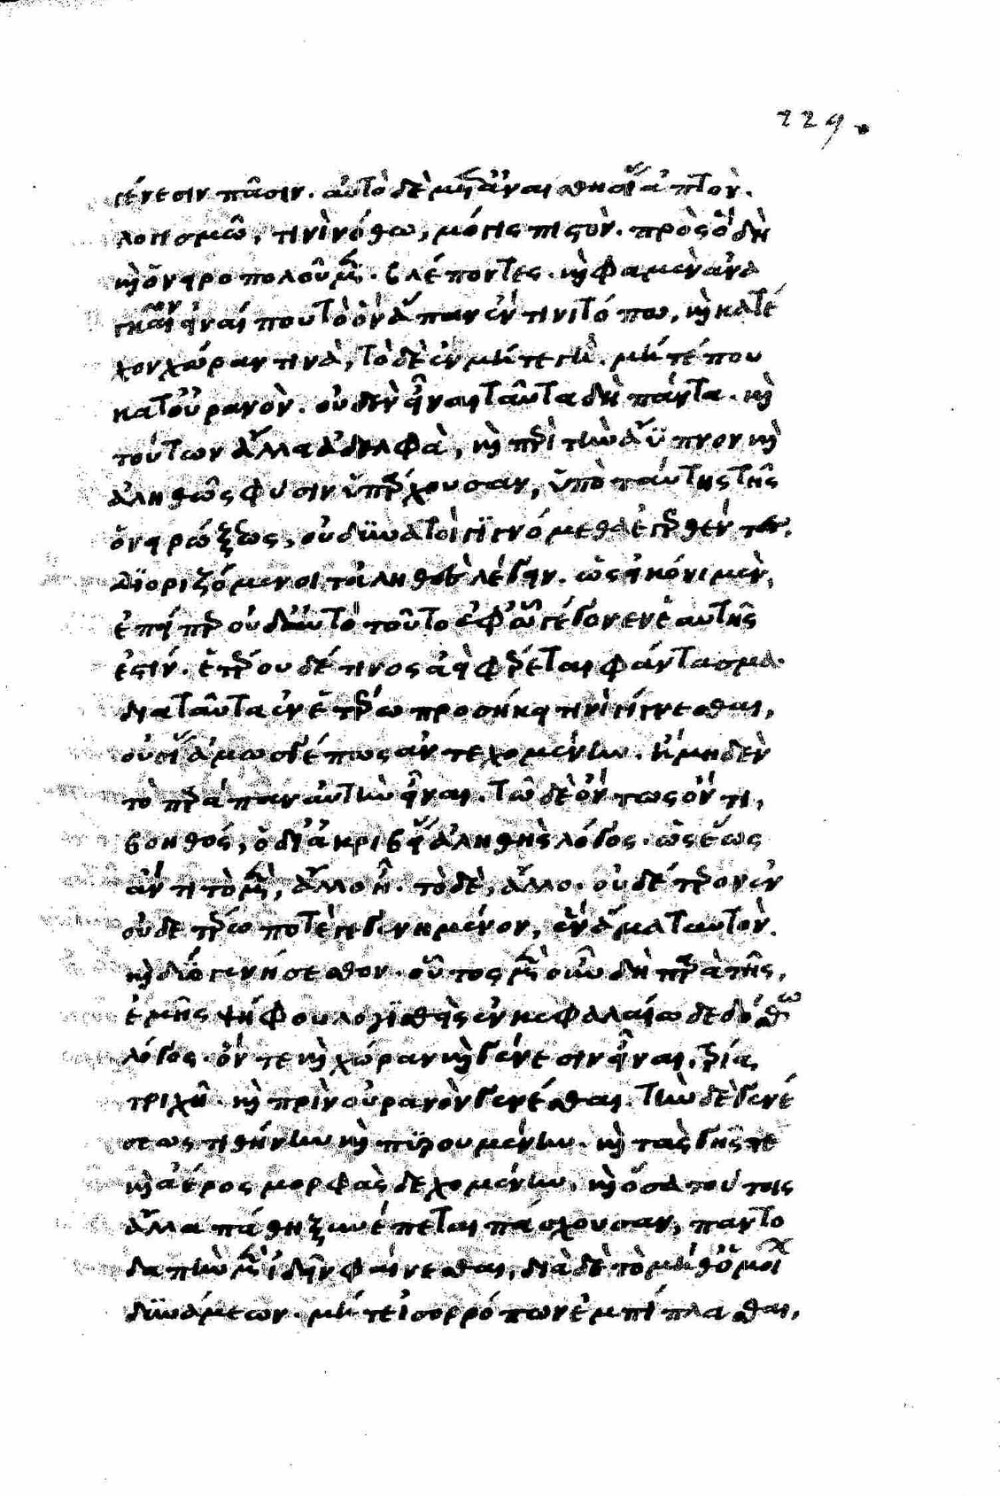 229.
γένεσιν πᾶσιν. αὐτὸ δὲ μετ' ἀναισθησίας ἁπτὸν.
λογισμῶ, τινὶ νόθω, μόγις πιστὸν. πρὸς ὃ δὴ
καὶ ὀνειροπολοῦμεν. βλέποντες. καὶ φαμὲν ἀνα
γκαῖον εἶναί που τὸ ὂν ἅπαν ἔν τινι τόπω, καὶ κατέ
χον χώραν τινὰ, τὸ δὲ ἐν μήτε γῆ. μήτέ που
κατ' οὐρανὸν. οὐδὲν εἶναι ταῦτα δὴ πάντα. καὶ
τούτων ἄλλα ἀδελφὰ, καὶ περὶ τὴν ἄϋπνον καὶ
ἀληθῶς φύσιν ὑπάρχουσαν, ὑπὸ ταύτης τῆς
ὀνειρώξεως, οὐ δυνατοὶ γιγνόμεθα ἐγερθέντες,
διοριζόμενοι τἀληθὲς λέγειν. ὡς εἰκόνι μὲν,
ἐπείπερ οὐδ' αὐτὸ τοῦτο ἐφ' ὧ γέγονεν ἑαυτῆς
ἐστίν. ἑτέρου δέ τινος ἀεὶ φέρεται φάντασμα.
διὰ ταῦτα ἐν ἑτέρω προσήκει τινὶ γίγνεσθαι,
οὐσίας ἁμωσγέπως ἀντεχομένην. ἢ μηδὲν
τὸ παράπαν αὐτὴν εἶναι. τῶ δὲ ὄντως ὄντι,
βοηθός, ὁ δι' ἀκριβείας ἀληθὴς λόγος. ὡς ἕως
ἄν τι τὸ μὲν, ἄλλο ἦ. τὸ δὲ, ἄλλο. οὐδέτερον ἐν
οὐδετέρω ποτὲ γεγενημένον, ἓν ἅμα ταυτὸν.
καὶ δύο γενήσεσθον. οὗτος μὲν οὖν δὴ παρὰ τῆς,
ἐμῆς ψήφου λογισθεὶς ἐν κεφαλαίω δεδόσθω
λόγος. ὄν τε καὶ χώραν καὶ γένεσιν εἶναι, τρία
τριχῆ. καὶ πρὶν οὐρανὸν γενέσθαι. τὴν δὲ γενέ
σεως τιθήνην καὶ πυρουμένην. καὶ τὰς γῆς τε
καὶ ἀέρος μορφὰς δεχομένην, καὶ ὅσα τούτοις
ἄλλα πάθη ξυνέπεται πάσχουσαν, παντο
δαπὴν μὲν ἰδεῖν φαίνεσθαι, διὰ δὲ τὸ μήθ' ὁμοίων
δυνάμεων. μήτε ἰσορρόπων ἐμπίπλασθαι,